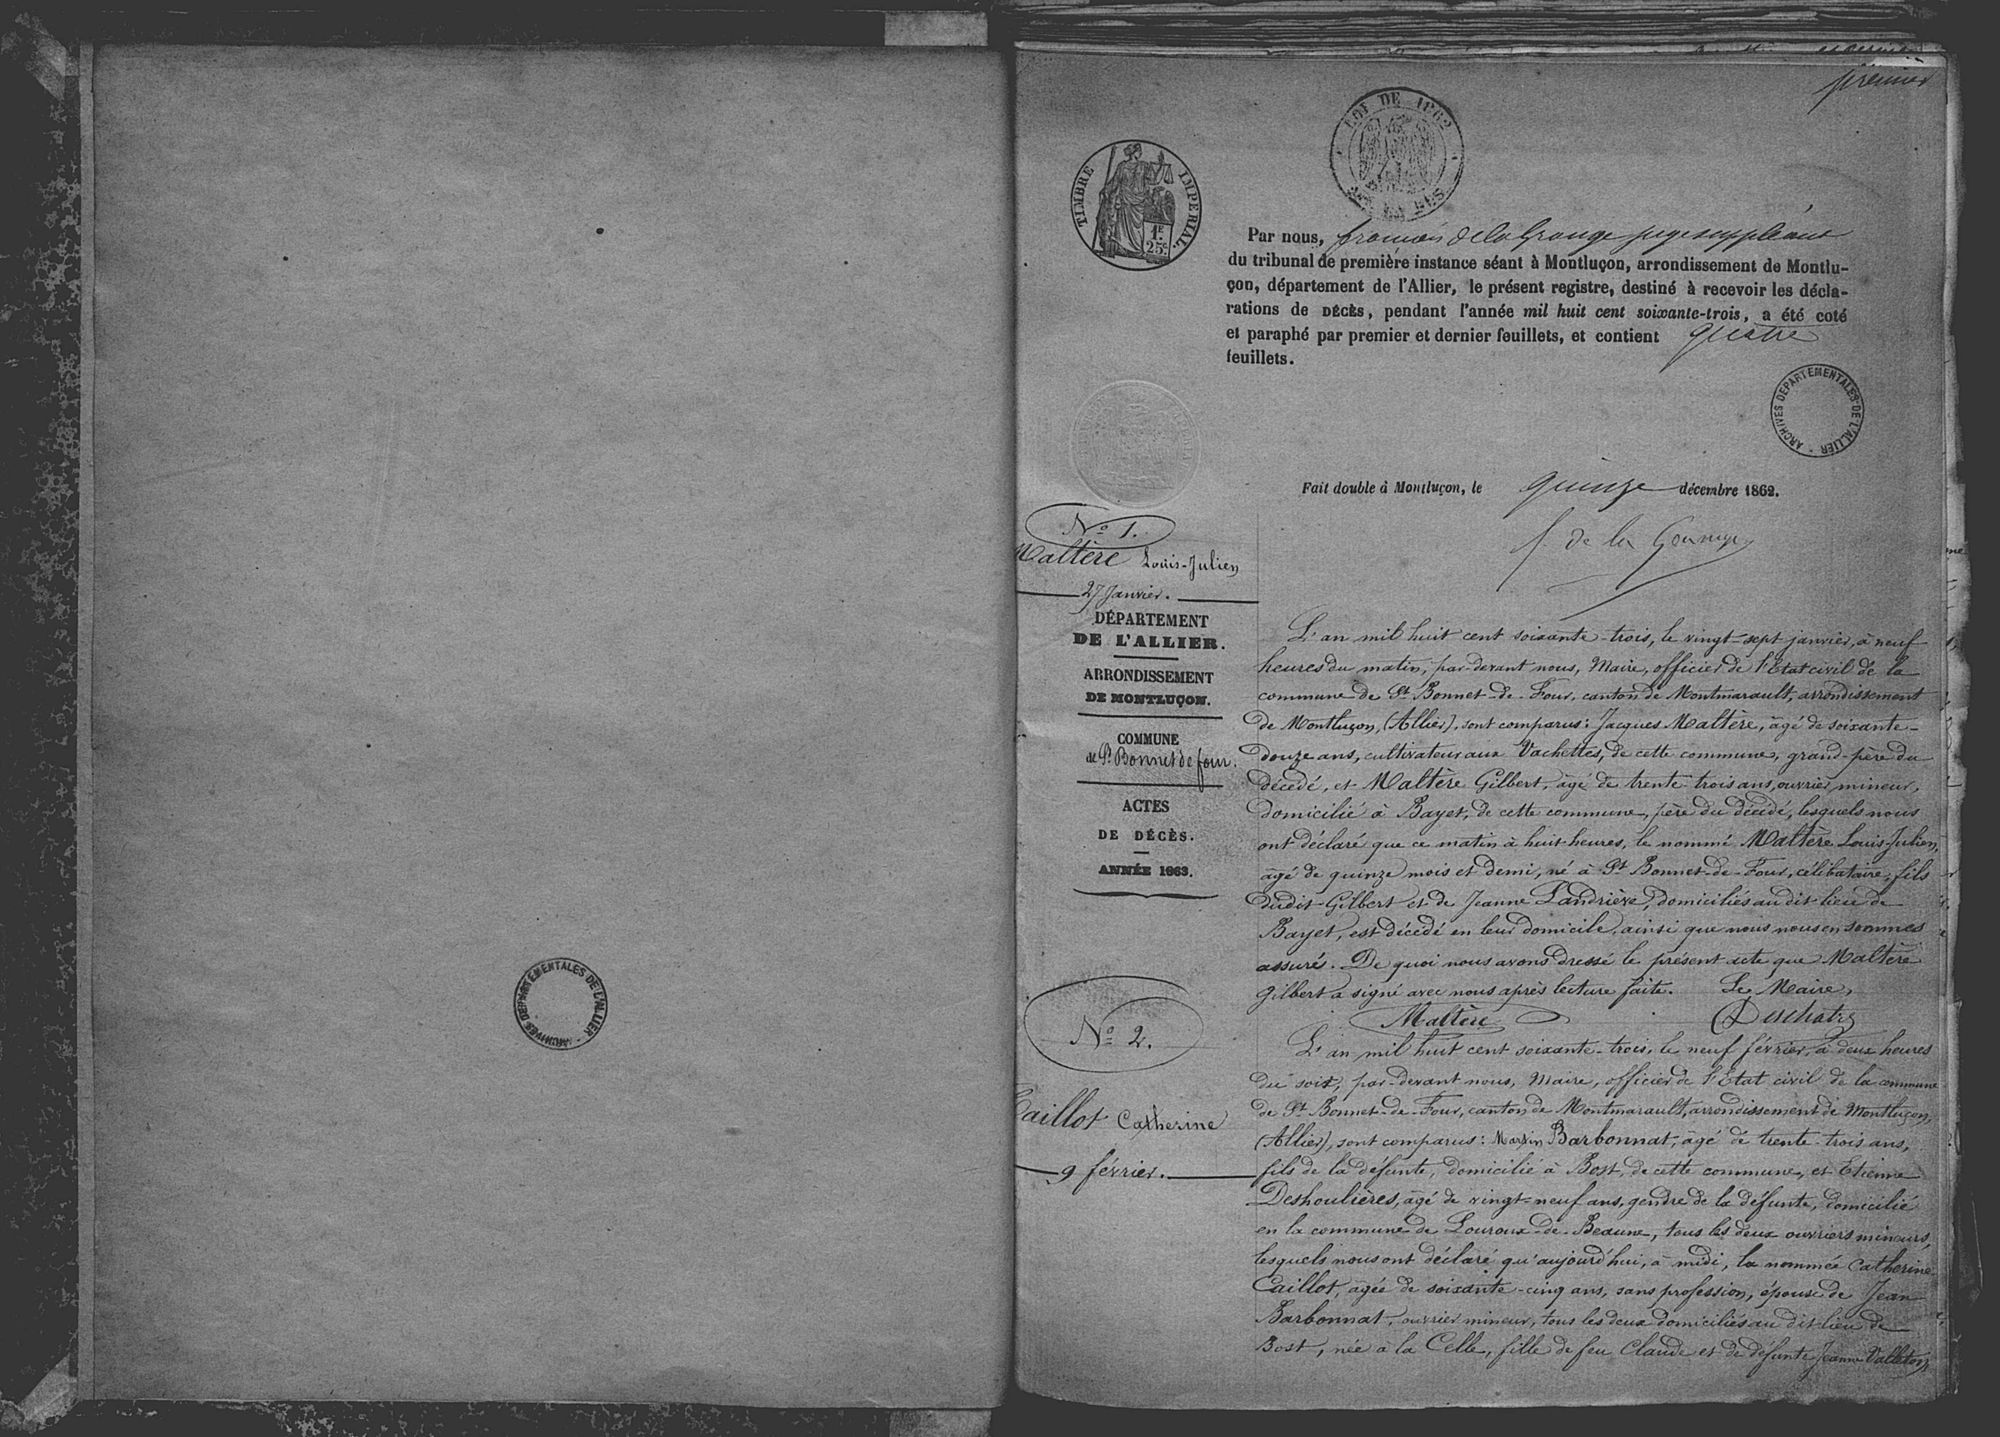 premier
LOI DE 1862
TIMBRE IMPERIAL
1F.
25c.
Par nous, juge suppléant
du tribunal de première instance séant à Montluçon, arrondissement de Montlu-
çon, département de l'Allier, le présent registre, destiné à recevoir les décla-
rations de DÉCÈS, pendant l'année mil huit cent soixante-trois, a été coté
et paraphé par premier et dernier feuillets, et contient quatre
feuillets.
ARCHIVES DEPARTEMENTALES DE L'ALLIER
Fait double à Montluçon, le quinze décembre 1862.
No 1.
Maltère Louis-Julien
27 Janvier.
DÉPARTEMENT
DE L'ALLIER.
ARRONDISSEMENT
DE MONTLUÇON.
COMMUNE
de St Bonnet de four.
ACTES
DE DÉCÈS.
ANNÉE 1863.
L'an mil huit cent soixante-trois, le vingt-sept janvier, à neuf
heures du matin, par-devant nous, Maire, officier de l'Etat civil de la
commune de St Bonnet-de-Four, canton de Montmarault, arrondissement
de Montluçon, (Allier), sont comparus: Jacques Maltère, âgé de soixante-
douze ans, cultivateur aux Vachettes, de cette commune, grand-père du
décédé, et Maltère Gilbert, âgé de trente-trois ans, ouvrier mineur,
domicilié à Bayet, de cette commune, père du décédé, lesquels nous
ont déclaré que ce matin à huit heures, le nommé Maltère Louis-Julien,
âgé de quinze mois et demi, né à St Bonnet-de-Four, célibataire, fils
dudit Gilbert et de Jeanne Landrière, domiciliés au dit lieu de
Bayet, est décédé en leur domicile, ainsi que nous nous en sommes
assurés. De quoi nous avons dressé le présent acte que Maltère
Gilbert a signé avec nous après lecture faite. Le Maire,
Maltère Deschatz
No 2.
Caillot Catherine
9 février.
L'an mil huit cent soixante-trois, le neuf février, à deux heures
du soir, par-devant nous, Maire, officier de l'Etat civil de la commune
de St Bonnet-de-Four, canton de Montmarault, arrondissement de Montluçon,
(Allier), sont comparus: Martin Barbonnat, âgé de trente-trois ans,
fils de la défunte, domicilié à Bost, de cette commune, et Etienne
Deshoulières, âgé de vingt-neuf ans, gendre de la défunte, domicilié
en la commune de Louroux-de-Beaune, tous les deux ouvriers mineurs,
lesquels nous ont déclaré qu'aujourd'hui, à midi, la nommée Catherine
Caillot, âgée de soixante-cinq ans, sans profession, épouse de Jean
Barbonnat, ouvrier mineur, tous les deux domiciliés au dit lieu de
Bost, née à la Celle, fille de feu Claude et de défunte Jeanne Valleton,
ARCHIVES DEPARTEMENTALES DE L'ALLIER